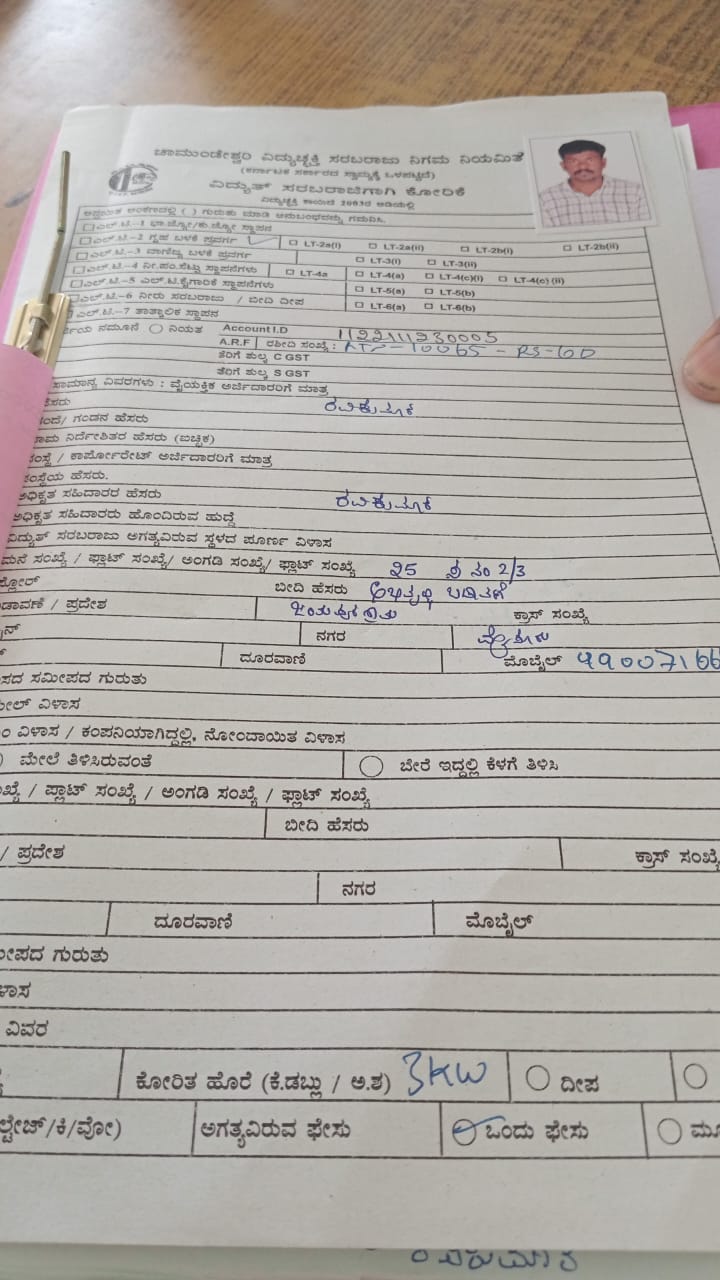 ಚಾಮುಂಡೇಶ್ವರಿ ವಿದ್ಯುಚ್ಛಕ್ತಿ ಸರಬರಾಜು ನಿಗಮ ನಿಯಮಿತ
(ಕರ್ನಾಟಕ ಸರ್ಕಾರದ ಸ್ವಾಮ್ಯಕ್ಕೆ ಒಳಪಟ್ಟಿದೆ)
ವಿದ್ಯುತ್ ಸರಬರಾಜಿಗಾಗಿ ಕೋರಿಕೆ
ವಿದ್ಯುಚ್ಛಕ್ತಿ ಕಾಯಿದೆ 2003ರ ಅಡಿಯಲ್ಲಿ
ಅನ್ವಯಿತ ಅಂಕಣದಲ್ಲಿ ( ) ಗುರುತು ಮಾಡಿ ಅನುಬಂಧವನ್ನು ಗಮನಿಸಿ.
ಎಲ್.ಟಿ.-1 ಭಾ.ಜ್ಯೋ/ಕು.ಜ್ಯೋ ಸ್ಥಾಪನ
ಎಲ್.ಟಿ.-2 ಗೃಹ ಬಳಕೆ ಪ್ರವರ್ಗ LT-2a(i) LT-2a(ii) LT-2b(i) LT-2b(ii)
ಎಲ್.ಟಿ.-3 ವಾಣಿಜ್ಯ ಬಳಕೆ ಪ್ರವರ್ಗ LT-3(i) LT-3(ii)
ಎಲ್.ಟಿ.-4 ನೀ.ಪಂ.ಸೆಟ್ಟು ಸ್ಥಾಪನೆಗಳು LT-4a LT-4(a) LT-4(c)(i) LT-4(c)(ii)
ಎಲ್.ಟಿ.-5 ಎಲ್.ಟಿ.ಕೈಗಾರಿಕೆ ಸ್ಥಾಪನೆಗಳು LT-5(a) LT-5(b)
ಎಲ್.ಟಿ.-6 ನೀರು ಸರಬರಾಜು / ಬೀದಿ ದೀಪ LT-6(a) LT-6(b)
ಎಲ್.ಟಿ.-7 ತಾತ್ಕಾಲಿಕ ಸ್ಥಾಪನ
ನಮೂನೆ ನಿಯತ Account I.D 112211230005
A.R.F ರಶೀದಿ ಸಂಖ್ಯೆ :
ತೆರಿಗೆ ಶುಲ್ಕ C GST
ತೆರಿಗೆ ಶುಲ್ಕ S GST
ಸಾಮಾನ್ಯ ವಿವರಗಳು : ವೈಯಕ್ತಿಕ ಅರ್ಜಿದಾರರಿಗೆ ಮಾತ್ರ
ರವಿಕುಮಾರ
ಗಂಡನ ಹೆಸರು
ನಿರ್ದೇಶಿತರ ಹೆಸರು (ಐಚ್ಛಿಕ)
ಸಂಸ್ಥೆ/ ಕಾರ್ಪೋರೇಟ್ ಅರ್ಜಿದಾರರಿಗೆ ಮಾತ್ರ
ಸಂಸ್ಥೆಯ ಹೆಸರು.
ಅಧಿಕೃತ ಸಹಿದಾರರ ಹೆಸರು ರವಿಕುಮಾರ
ಅಧಿಕೃತ ಸಹಿದಾರರು ಹೊಂದಿರುವ ಹುದ್ದೆ
ವಿದ್ಯುತ್ ಸರಬರಾಜು ಅಗತ್ಯವಿರುವ ಸ್ಥಳದ ಪೂರ್ಣ ವಿಳಾಸ
ಮನೆ ಸಂಖ್ಯೆ / ಫ್ಲಾಟ್ ಸಂಖ್ಯೆ/ ಅಂಗಡಿ ಸಂಖ್ಯೆ/ ಫ್ಲಾಟ್ ಸಂಖ್ಯೆ 25 2/3
ಬೀದಿ ಹೆಸರು
ಪ್ರದೇಶ ಕ್ರಾಸ್ ಸಂಖ್ಯೆ
ನಗರ ಮೈಸೂರು
ದೂರವಾಣಿ ಮೊಬೈಲ್ 99007166
ಸಮೀಪದ ಗುರುತು
ವಿಳಾಸ
ವಿಳಾಸ / ಕಂಪನಿಯಾಗಿದ್ದಲ್ಲಿ, ನೋಂದಾಯಿತ ವಿಳಾಸ
ಮೇಲೆ ತಿಳಿಸಿರುವಂತೆ ಬೇರೆ ಇದ್ದಲ್ಲಿ ಕೆಳಗೆ ತಿಳಿಸಿ
/ ಪ್ಲಾಟ್ ಸಂಖ್ಯೆ / ಅಂಗಡಿ ಸಂಖ್ಯೆ / ಫ್ಲಾಟ್ ಸಂಖ್ಯೆ
ಬೀದಿ ಹೆಸರು
/ ಪ್ರದೇಶ ಕ್ರಾಸ್ ಸಂಖ್ಯೆ
ನಗರ
ದೂರವಾಣಿ ಮೊಬೈಲ್
ಗುರುತು
ವಿವರ
ಕೋರಿತ ಹೊರೆ (ಕೆ.ಡಬ್ಲು / ಅ.ಶ) 3KW ದೀಪ
ಅಗತ್ಯವಿರುವ ಫೇಸು ಒಂದು ಫೇಸು
ರವಿಕುಮಾರ